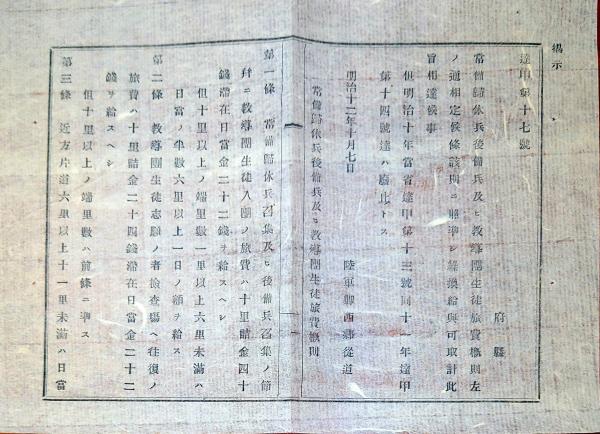 揭示
達甲第十七號
府縣
常備歸休兵後備兵及ヒ敎導團生徒旅費槪則左
ノ通相定候條該則ニ照準シ繰換給與可取計此
旨相達候事
但明治十年當省達甲第十三號同十一年達甲
第十四號達ハ廢止トス
明治十二年十月七日
陸軍卿西鄕從道
常備歸休兵後備兵及ヒ敎導團生徒旅費槪則
第一條 常備歸休兵召集及ヒ後備兵召集ノ節
幷ニ敎導團生徒入團ノ旅費ハ十里詰金四十
錢滯在日當金二十二錢ヲ給スヘシ
但十里以上ノ端里數一里以上六里未滿ハ
日當ノ半數六里以上一日ノ額ヲ給ス
第二條 敎導團生徒志願ノ者撿査場ヘ往復ノ
旅費ハ十里詰金二十四錢滯在日當金二十二
錢ヲ給スヘシ
但十里以上ノ端里數ハ前條ニ準ス
第三條 近方片道六里以上十一里未滿ハ日當